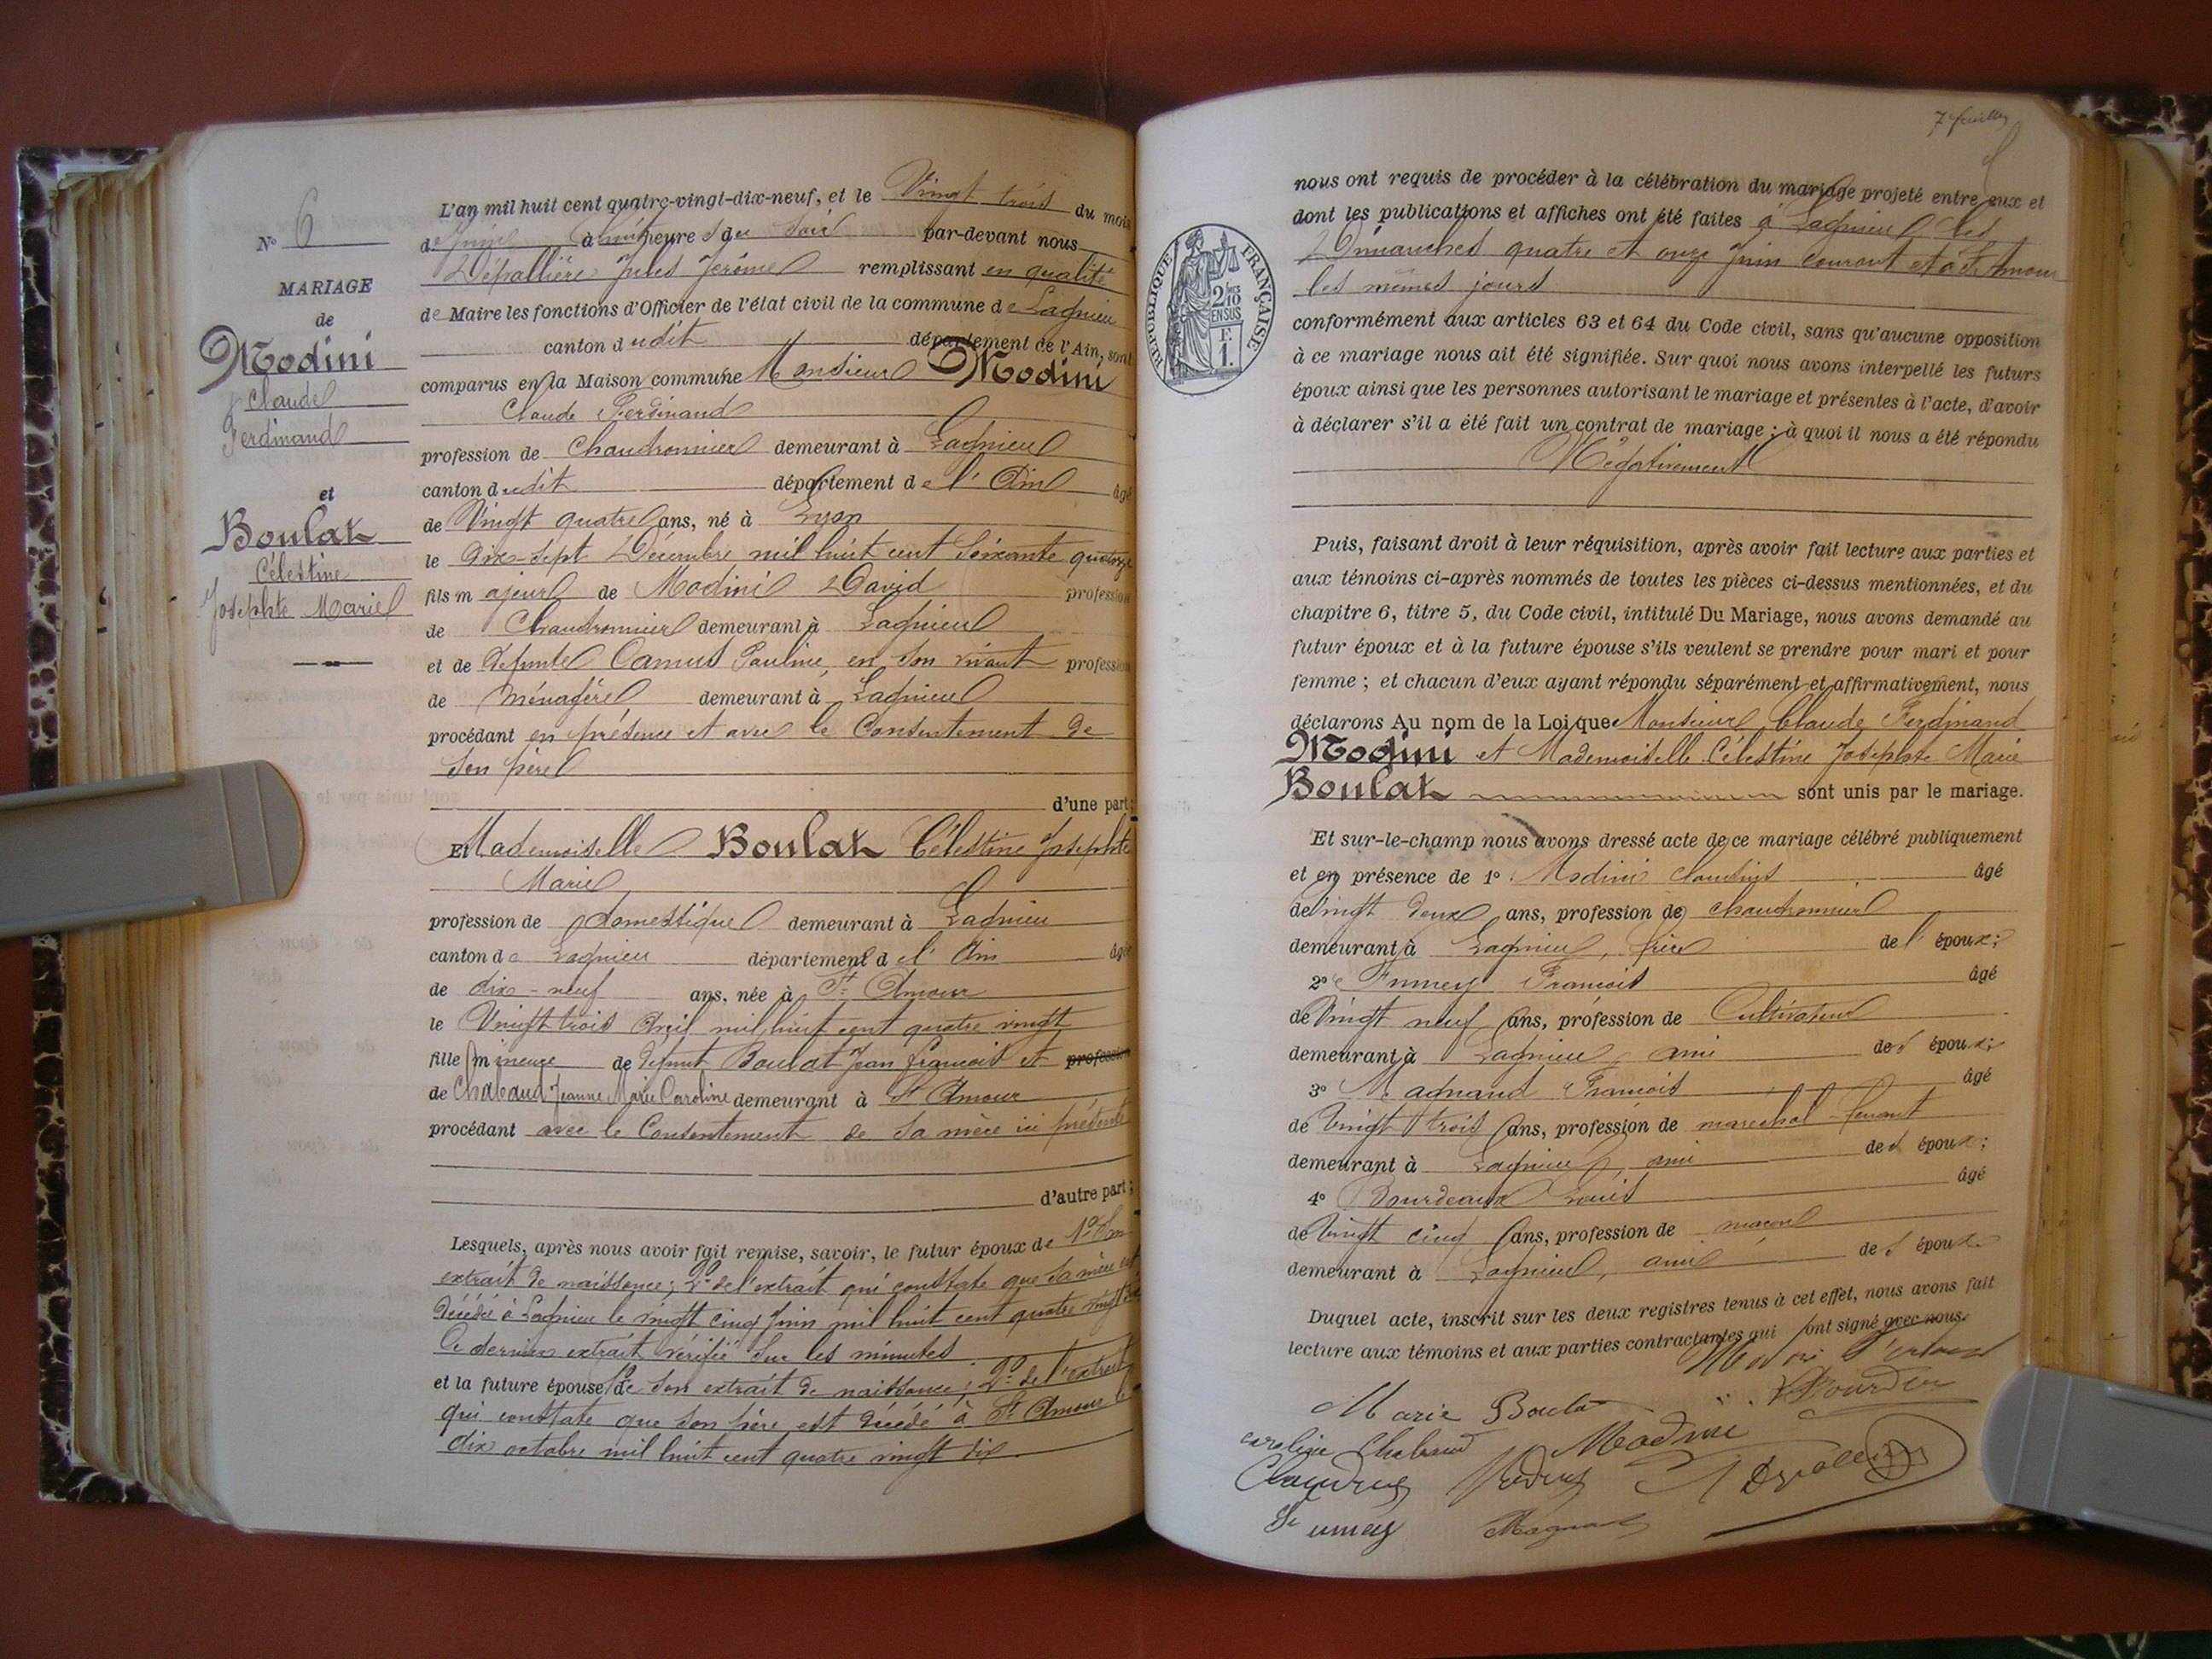 N° 6
MARIAGE
de
Modini
Claude
Ferdinand
et
Boulat
Célestine
Josephte Marie
L'an mil huit cent quatre-vingt-dix-neuf, et le Vingt trois du mois
de Juin à huit heures du soir par-devant nous
Dépallière Jules Jerôme remplissant en qualité
de Maire les fonctions d'Officier de l'état civil de la commune de Lagnieu
canton dudit département de l'Ain, sont
comparus en la Maison commune Monsieur Modini
Claude Ferdinand
profession de Chaudronnier demeurant à Lagnieu
canton dudit département de l'Ain âgé
de Vingt quatre ans, né à Lyon
le dix-sept Décembre mil huit cent soixante quatorze
fils majeur de Modini David profession
de Chaudronnier demeurant à Lagnieu
et de défunte Camus Pauline, en son vivant profession
de ménagère demeurant à Lagnieu
procédant en présence et avec le Consentement de
son père
d'une part;
Et Mademoiselle Boulat Célestine Josephte
Marie
profession de domestique demeurant à Lagnieu
canton de Lagnieu département de l'Ain âgée
de dix-neuf ans, née à St Amour
le Vingt trois Avril mil huit cent quatre vingt
fille mineure de défunt Boulat Jean françois et profession
de Chabaud Jeanne Marie Caroline demeurant à St Amour
procédant avec le Consentement de sa mère ici présente
d'autre part;
Lesquels, après nous avoir fait remise, savoir, le futur époux de 1° son
extrait de naissance; 2° de l'extrait qui constate que sa mère est
décédée à Lagnieu le vingt cinq Juin mil huit cent quatre vingt
Ce dernier extrait vérifié sur les minutes
et la future épouse de son extrait de naissance; 2° de l'extrait
qui constate que son père est décédé à St Amour le
dix octobre mil huit cent quatre vingt dix
7e feuillet
nous ont requis de procéder à la célébration du mariage projeté entre eux et
dont les publications et affiches ont été faites à Lagnieu les
Dimanches quatre et onze Juin courant et à St Amour
les mêmes jours
RÉPUBLIQUE FRANÇAISE
2/10 EN SUS
F.
1.
conformément aux articles 63 et 64 du Code civil, sans qu'aucune opposition
à ce mariage nous ait été signifiée. Sur quoi nous avons interpellé les futurs
époux ainsi que les personnes autorisant le mariage et présentes à l'acte, d'avoir
à déclarer s'il a été fait un contrat de mariage; à quoi il nous a été répondu
Négativement
Puis, faisant droit à leur réquisition, après avoir fait lecture aux parties et
aux témoins ci-après nommés de toutes les pièces ci-dessus mentionnées, et du
chapitre 6, titre 5, du Code civil, intitulé Du Mariage, nous avons demandé au
futur époux et à la future épouse s'ils veulent se prendre pour mari et pour
femme; et chacun d'eux ayant répondu séparément et affirmativement, nous
déclarons Au nom de la Loi que Monsieur Claude Ferdinand
Modini et Mademoiselle Célestine Josephte Marie
Boulat sont unis par le mariage.
Et sur-le-champ nous avons dressé acte de ce mariage célébré publiquement
et en présence de 1° Modini Claudius âgé
de vingt deux ans, profession de chaudronnier
demeurant à Lagnieu, frère de l'époux;
2° Fumey François âgé
de Vingt neuf ans, profession de Cultivateur
demeurant à Lagnieu, ami des époux;
3° Magnand François âgé
de Vingt trois ans, profession de maréchal ferrant
demeurant à Lagnieu, ami des époux;
4° Bourdeaux Louis âgé
de Vingt cinq ans, profession de maçon
demeurant à Lagnieu, ami des époux
Duquel acte, inscrit sur les deux registres tenus à cet effet, nous avons fait
lecture aux témoins et aux parties contractantes qui ont signé avec nous.
Marie Boulat
Caroline Chabaud Modini
Claudius Modini
Fumey Magnand